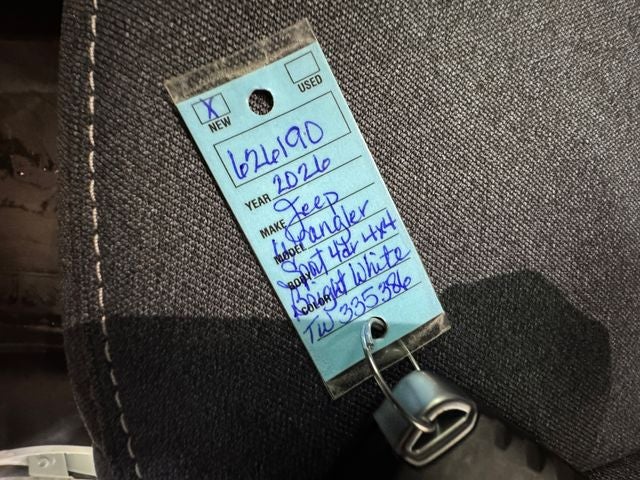 X
NEW
USED
626190
YEAR 2026
MAKE Jeep
MODEL Wrangler
BODY Sport 4dr 4x4
COLOR Bright White
TW335386